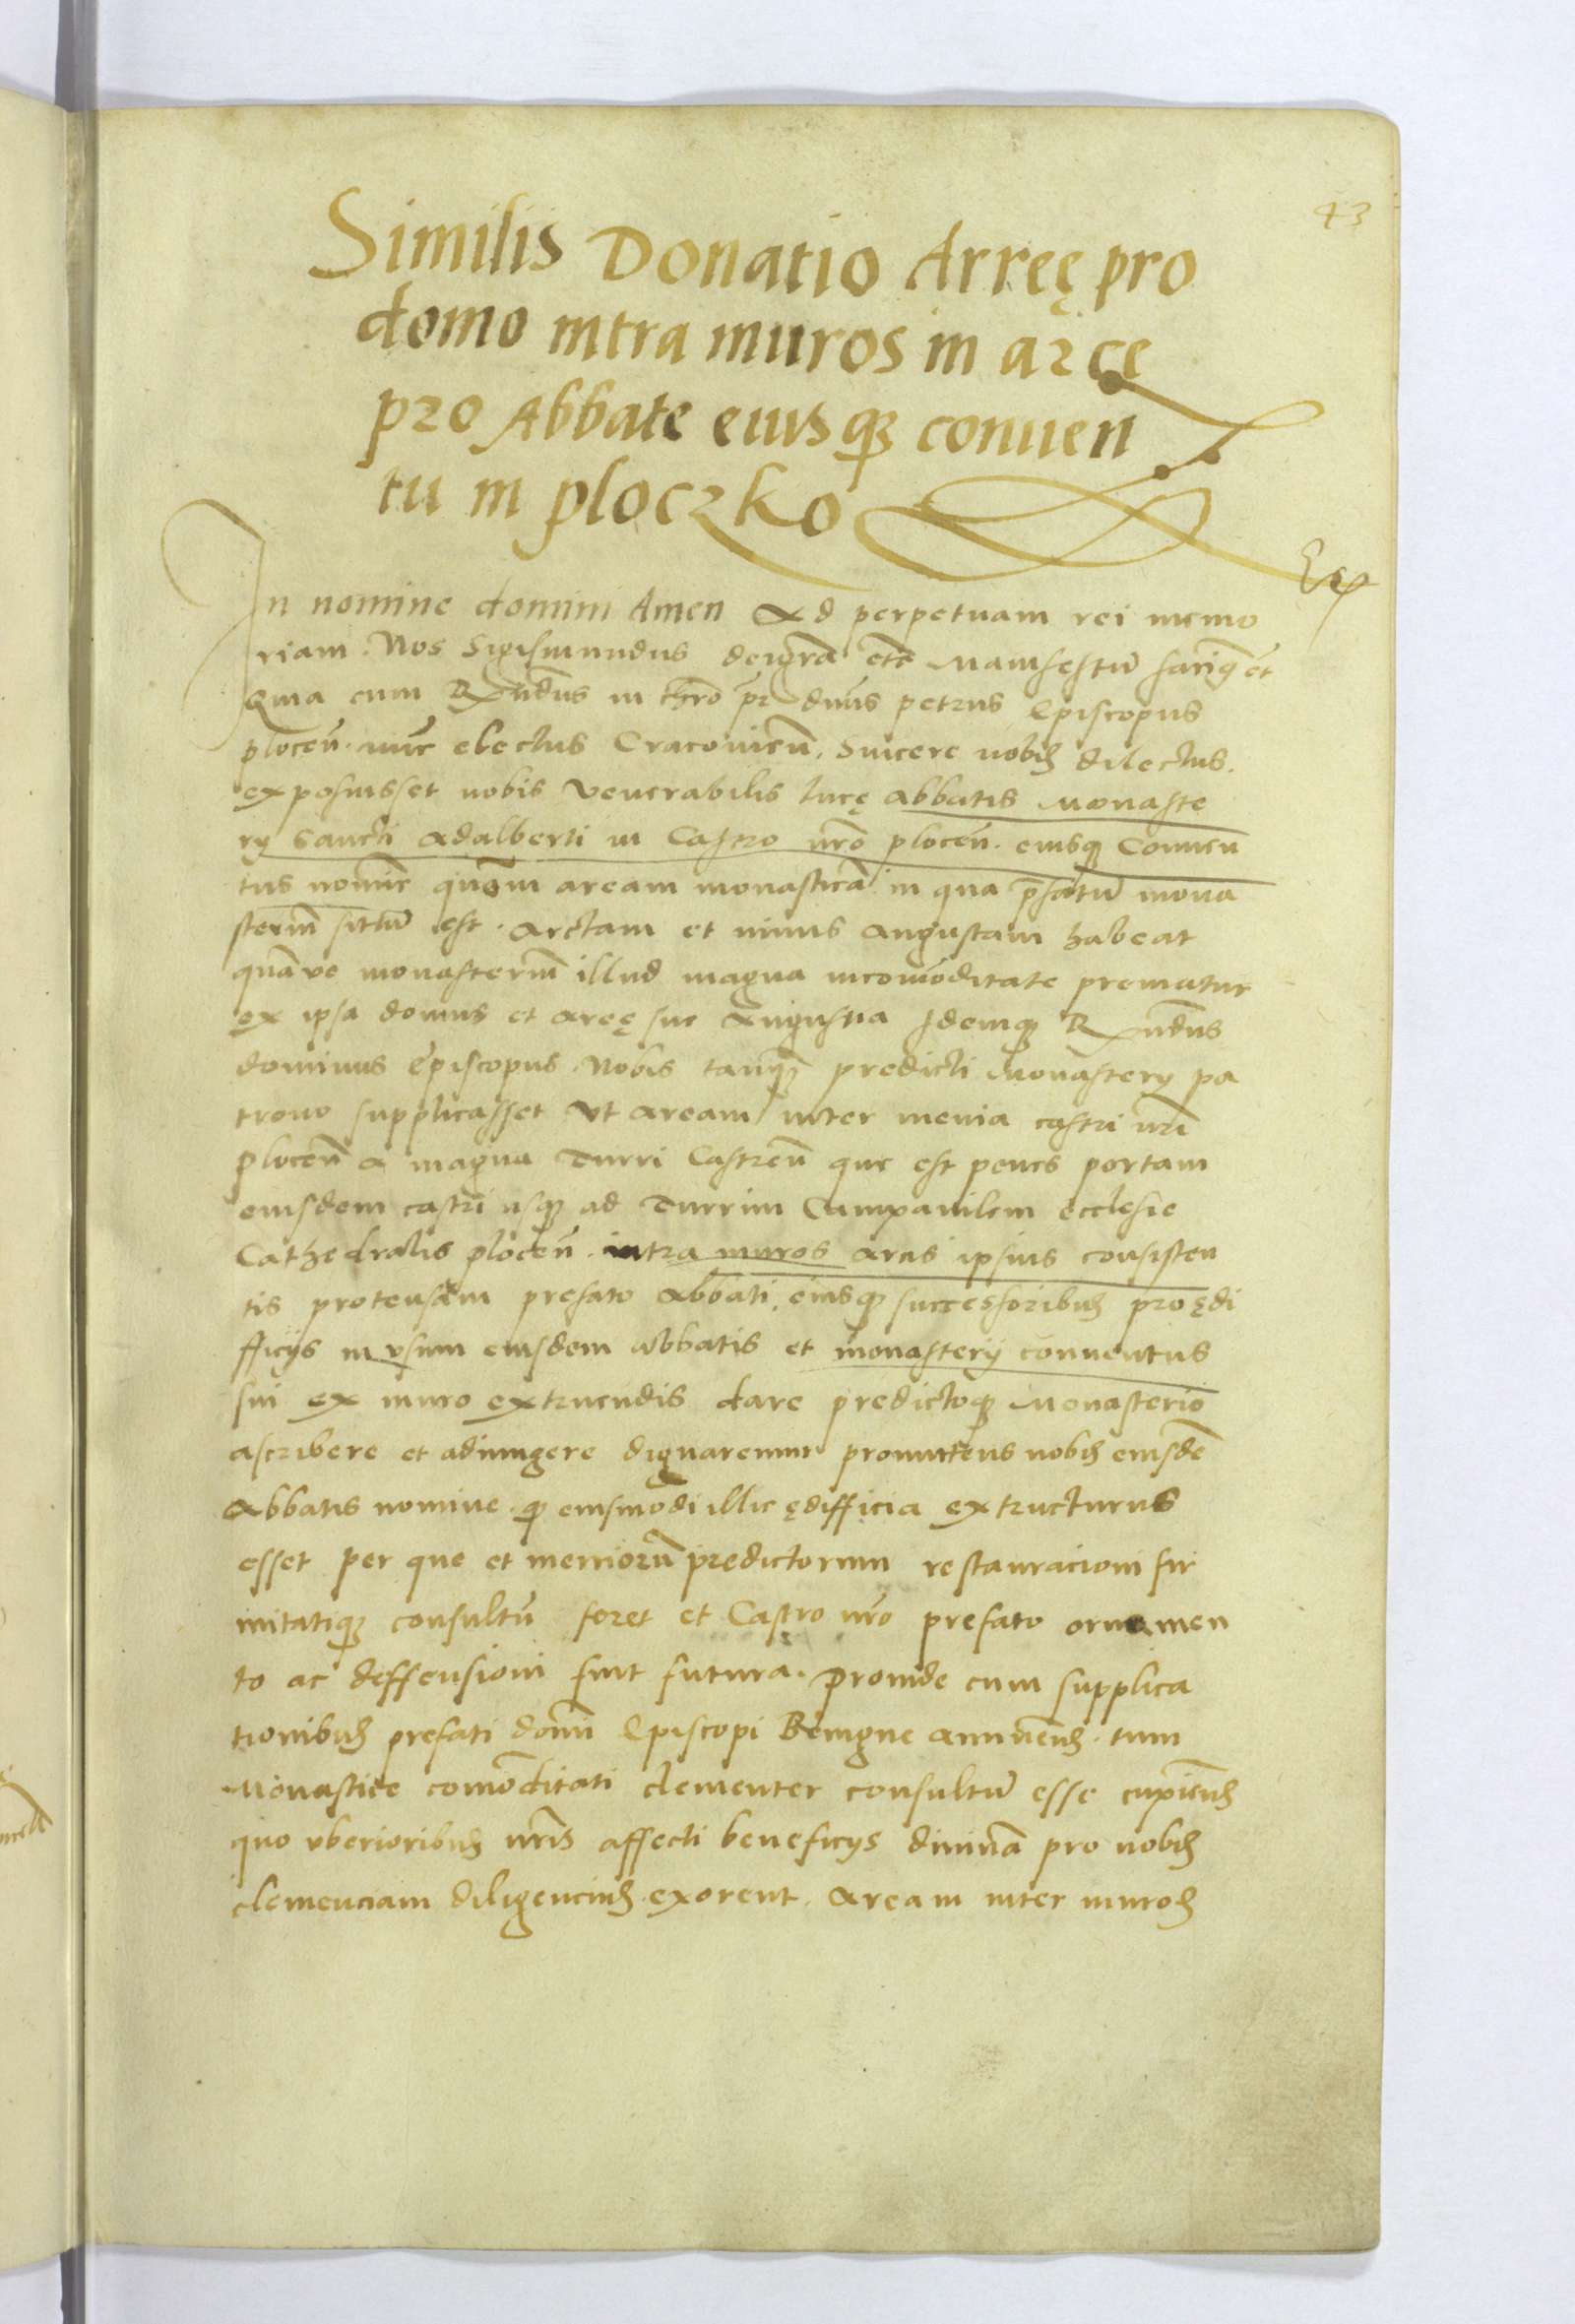 43
Similis Donatio Arreę pro
domo intra muros in arce
pro Abbate eiusq3 conuen
tu in ploczko
In nomine domini Amen Ad perpetuam rei memo
riam. Nos Sigismundus dei gr̃a etc̃ Manifestũ facimq̃ etc̃
Quia cum R̃ndus in chr̃o pr̃ dñus petrus Episcopus
plocen̄. nũc electus Cracovien̄. Sincere nobis dilectus.
exposuisset nobis venerabilis lucę abbatis Monaste
rÿ sancti Adalberti in Castro nr̃o plocen̄. eiusq3 Conuen
tus nomĩe quõm aream monasticã in qua p̃fatũ mona
steriũ situũ est. arctam et nimis angustam habeat
quãve monasteriũ illud magna incomõditate prematur
ex ipsa domus et areę sue angustia Idemq3 R̃ndus
dominus episcopus. Nobis tanq3 predicti Monasterÿ pa
trono supplicasset Vt aream inter menia castri nr̃i
plocen̄ a magna Turri Castren̄ que est penes portam
eiusdem castri usq3 ad Turrim Campanilem ecclesie
Cathedralis plocen̄. intra muros arcis ipsius consisten
tis protensam prefato Abbati, eiusq3 successoribus pro ędi
fficÿs in vsum eiusdem abbatis et monasterÿ conuentus
sui ex muro extruendis dare predictoq3 Monasterio
ascribere et adiungere dignaremur promittens nobis eiusdẽ
Abbatis nomine. q3 eiusmodi illic ędifficia extructurus
esset per que et meniorũ predictorum restauracioni fir
mitatiq3 consultũ foret et Castro nr̃o prefato ornamen
to ac deffensioni sint futura. Proinde cum supplica
tionibus prefati domi̅ Episcopi Benigne annuẽtes. tum
Monastice comõditati clementer consultũ esse cupiẽtes
quo vberioribus nr̃is affecti beneficÿs diuinã pro nobis
clemenciam diligencius. exorent. aream inter muros